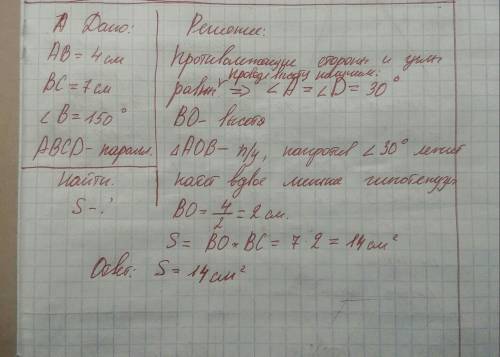 Дано:
AB = 4 см
BC = 7 см
∠B = 150°
ABCD - паралл.
Найти:
S - ?
Решение:
Противолежащие стороны и углы
проведя высоту получим:
равны ⇒ ∠A = ∠D = 30°
BO - высота
△AOB - п/у, напротив ∠30° лежит
катет вдвое меньше гипотенузы
BO = 4/2 = 2 см.
S = BO · BC = 7 · 2 = 14 см²
Ответ: S = 14 см²